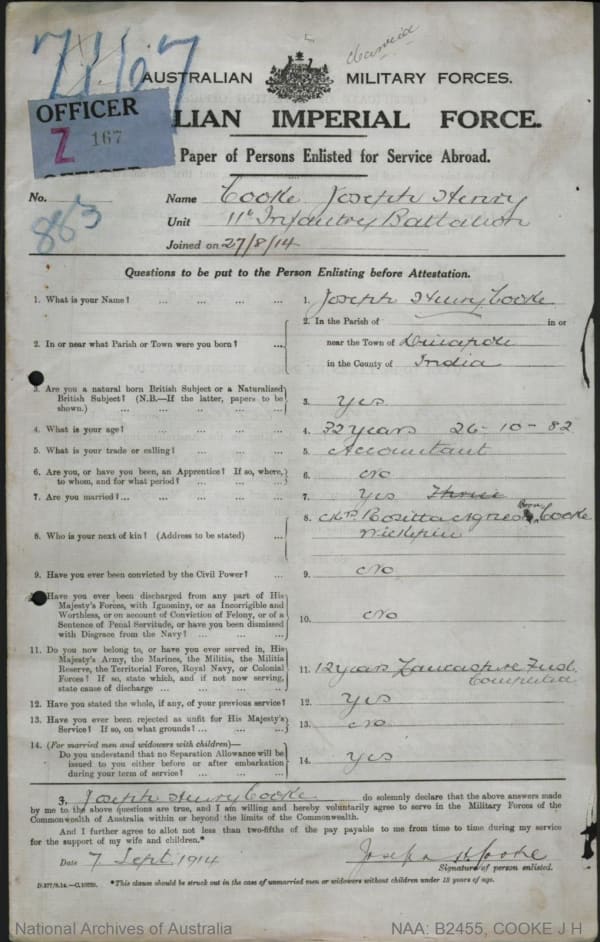 7167
Married
AUSTRALIAN MILITARY FORCES.
OFFICER
Z 167
OFFICER
LIAN IMPERIAL FORCE.
Paper of Persons Enlisted for Service Abroad.
No. 883
Name Cooke Joseph Henry
Unit 11th Infantry Battalion
Joined on 27/8/14
Questions to be put to the Person Enlisting before Attestation.
1. What is your Name? ... ... ... ... 1. Joseph Henry Cooke
2. In or near what Parish or Town were you born? ... 2. In the Parish of in or
near the Town of Dinapore
in the County of India
3. Are you a natural born British Subject or a Naturalized
British Subject? (N.B.—If the latter, papers to be
shown.) ... ... ... ... 3. Yes
4. What is your age? ... ... ... ... 4. 32 years 26-10-82
5. What is your trade or calling? ... ... ... 5. Accountant
6. Are you, or have you been, an Apprentice? If so, where,
to whom, and for what period? ... ... ... 6. No
7. Are you married? ... ... ... ... 7. Yes Three
8. Who is your next of kin? (Address to be stated) ... 8. Mrs Rositta Agnes Cooke
Wickepin
9. Have you ever been convicted by the Civil Power? ... 9. No
10. Have you ever been discharged from any part of His
Majesty's Forces, with Ignominy, or as Incorrigible and
Worthless, or on account of Conviction of Felony, or of a
Sentence of Penal Servitude, or have you been dismissed
with Disgrace from the Navy? ... ... ... 10. No
11. Do you now belong to, or have you ever served in, His
Majesty's Army, the Marines, the Militia, the Militia
Reserve, the Territorial Force, Royal Navy, or Colonial
Forces? If so, state which, and if not now serving,
state cause of discharge ... ... ... ... 11. 12 years Lancashire Fusl.
Completed
12. Have you stated the whole, if any, of your previous service? 12. Yes
13. Have you ever been rejected as unfit for His Majesty's
Service? If so, on what grounds? ... ... ... 13. No
14. (For married men and widowers with children)—
Do you understand that no Separation Allowance will be
issued to you either before or after embarkation
during your term of service? ... ... ... 14. Yes
3, Joseph Henry Cooke do solemnly declare that the above answers made
by me to the above questions are true, and I am willing and hereby voluntarily agree to serve in the Military Forces of the
Commonwealth of Australia within or beyond the limits of the Commonwealth.
And I further agree to allot not less than two-fifths of the pay payable to me from time to time during my service
for the support of my wife and children.*
Date 7 Sept. 1914 Joseph H Cooke
Signature of person enlisted.
*This clause should be struck out in the case of unmarried men or widowers without children under 18 years of age.
National Archives of Australia NAA: B2455, COOKE J H